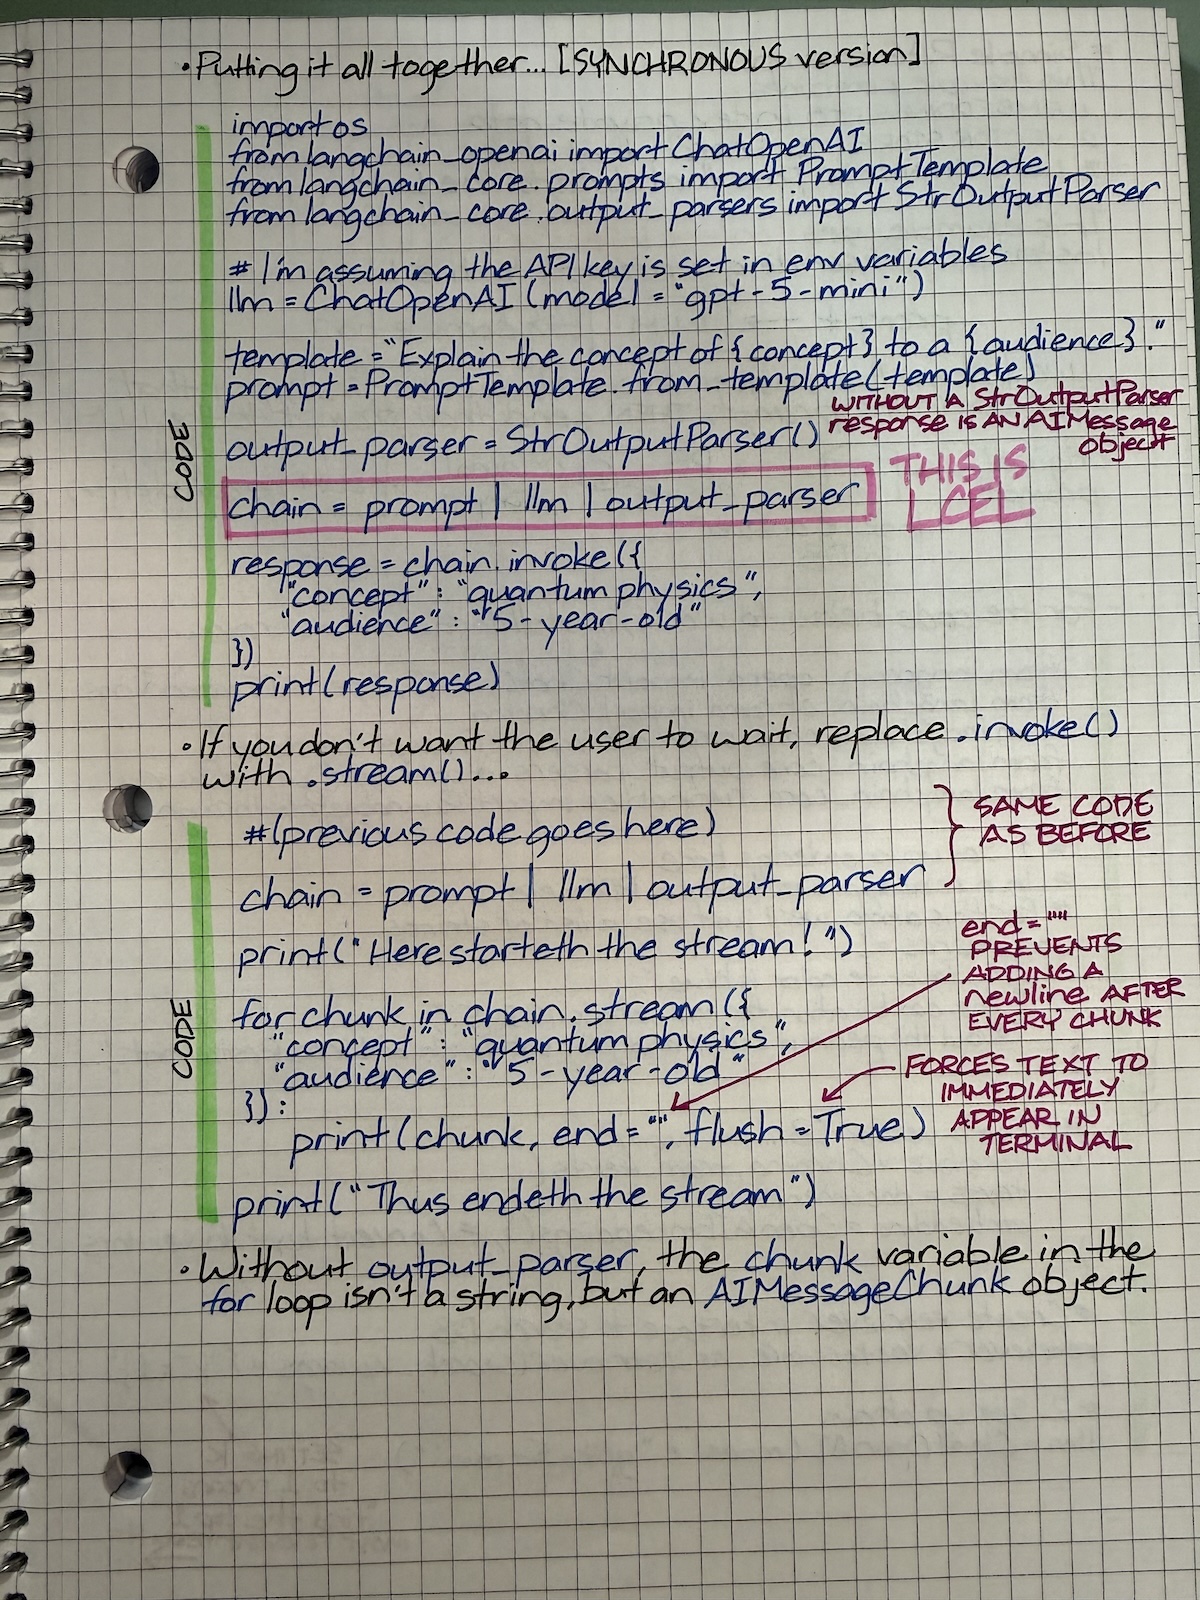 • Putting it all together... [SYNCHRONOUS version]
import os
from langchain_openai import ChatOpenAI
from langchain_core.prompts import PromptTemplate
from langchain_core.output_parsers import StrOutputParser
# I'm assuming the API key is set in env variables
llm = ChatOpenAI(model="gpt-5-mini")
template = "Explain the concept of {concept} to a {audience}."
prompt = PromptTemplate.from_template(template)
WITHOUT A StrOutputParser
response IS AN AIMessage
object
output_parser = StrOutputParser()
CODE
chain = prompt | llm | output_parser
THIS IS
LCEL
response = chain.invoke({
"concept": "quantum physics",
"audience": "5-year-old"
})
print(response)
• If you don't want the user to wait, replace .invoke()
with .stream()...
#(previous code goes here)
SAME CODE
AS BEFORE
chain = prompt | llm | output_parser
print("Here starteth the stream!")
end=""
PREVENTS
ADDING A
newline AFTER
EVERY CHUNK
CODE
for chunk in chain.stream({
"concept": "quantum physics",
"audience": "5-year-old"
}):
FORCES TEXT TO
IMMEDIATELY
APPEAR IN
TERMINAL
print(chunk, end="", flush=True)
print("Thus endeth the stream")
• Without output_parser, the chunk variable in the
for loop isn't a string, but an AIMessageChunk object.